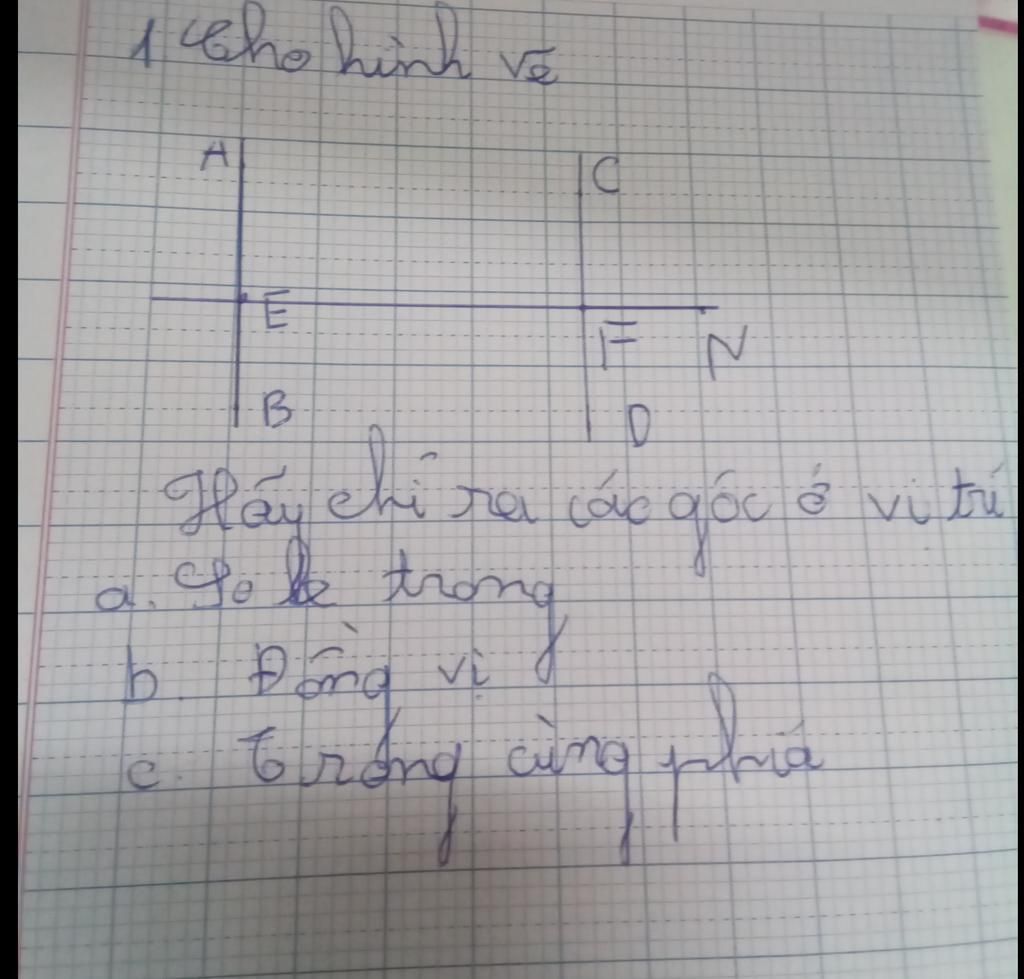 1 Cho hình vẽ
A
C
E
F N
B
D
Hãy chỉ ra các góc ở vị trí
a. So le trong
b. Đồng vị
c. Trong cùng phía